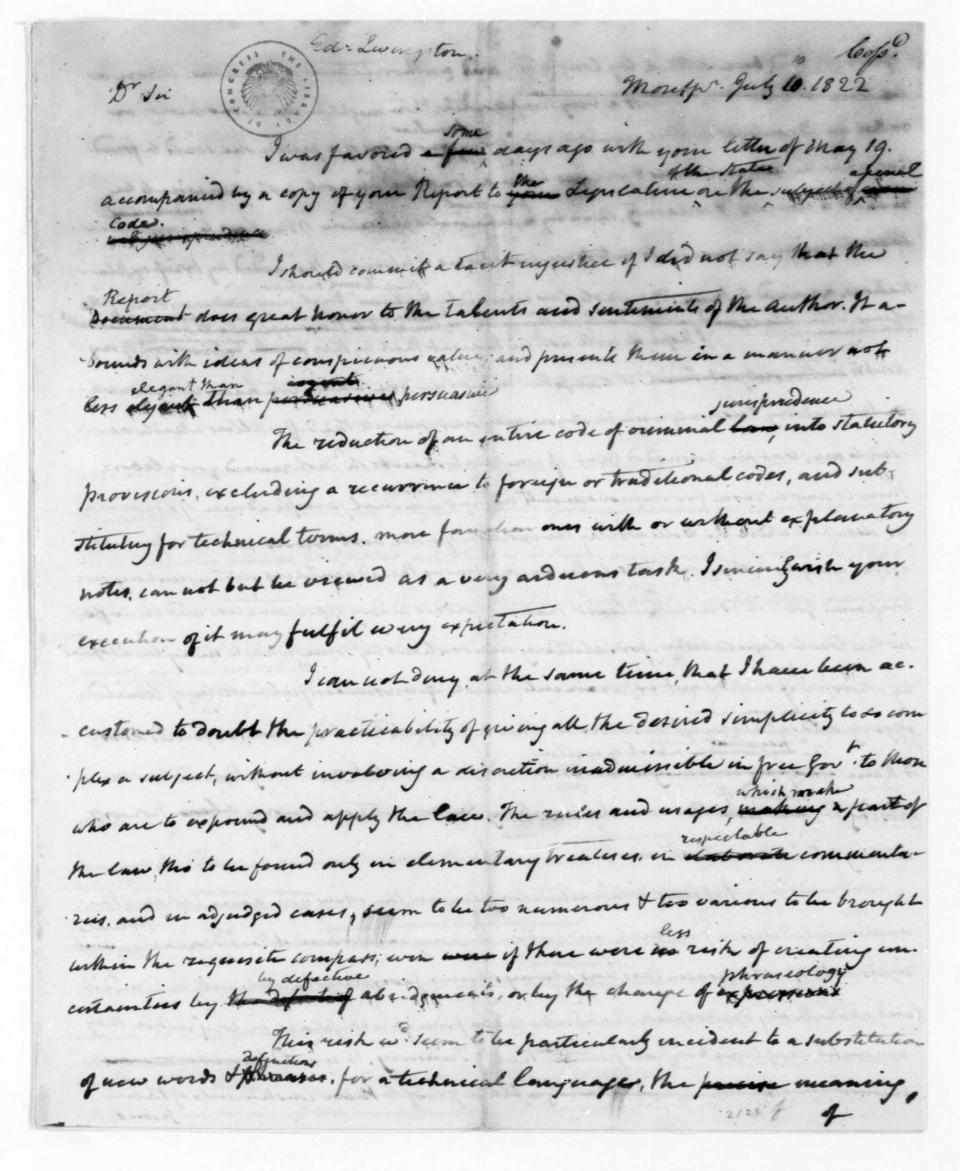 Edw Livingston.
Copd
Montpr. July 10. 1822
Dr Sir
some
I was favored a few days ago with your letter of May 19.
of the State a penal
accompanied by a copy of your Report to the your Legislature on the subject of
Code.
I should commit a tacit injustice if I did not say that the
Report
Document does great honor to the talents and sentiments of the Author. It a-
-bounds with ideas of conspicuous value, and presents them in a manner not
elegant than cogent
less elegant than persuasive persuasive
jurisprudence
The reduction of an entire code of criminal law, into statutory
provisions, excluding a recurrence to foreign or traditional codes, and sub-
stituting for technical terms, more familiar ones with or without explanatory
notes, can not but be viewed as a very arduous task. I sincerely wish your
execution of it may fulfil every expectation.
I can not deny, at the same time, that I have been ac-
customed to doubt the practicability of giving all the desired simplicity to so com
-plex a subject, without involving a discretion inadmissible in free Govt to those
which make
who are to expound and apply the law. The rules and usages, making a part of
respectable
the law, tho to be found only in elementary treatises, in elaborate commenta-
-ries, and in adjudged cases, seem to be too numerous & too various to be brought
less
within the requisite compass; even were if there were no risk of creating un-
by defective phraseology
certainties by the defect of abridgments, or by the change of expressions
This risk wd. seem to be particularly incident to a substitution
definitions
of new words & phrases, for a technical language, the precise meaning
of
THE LIBRARY OF CONGRESS